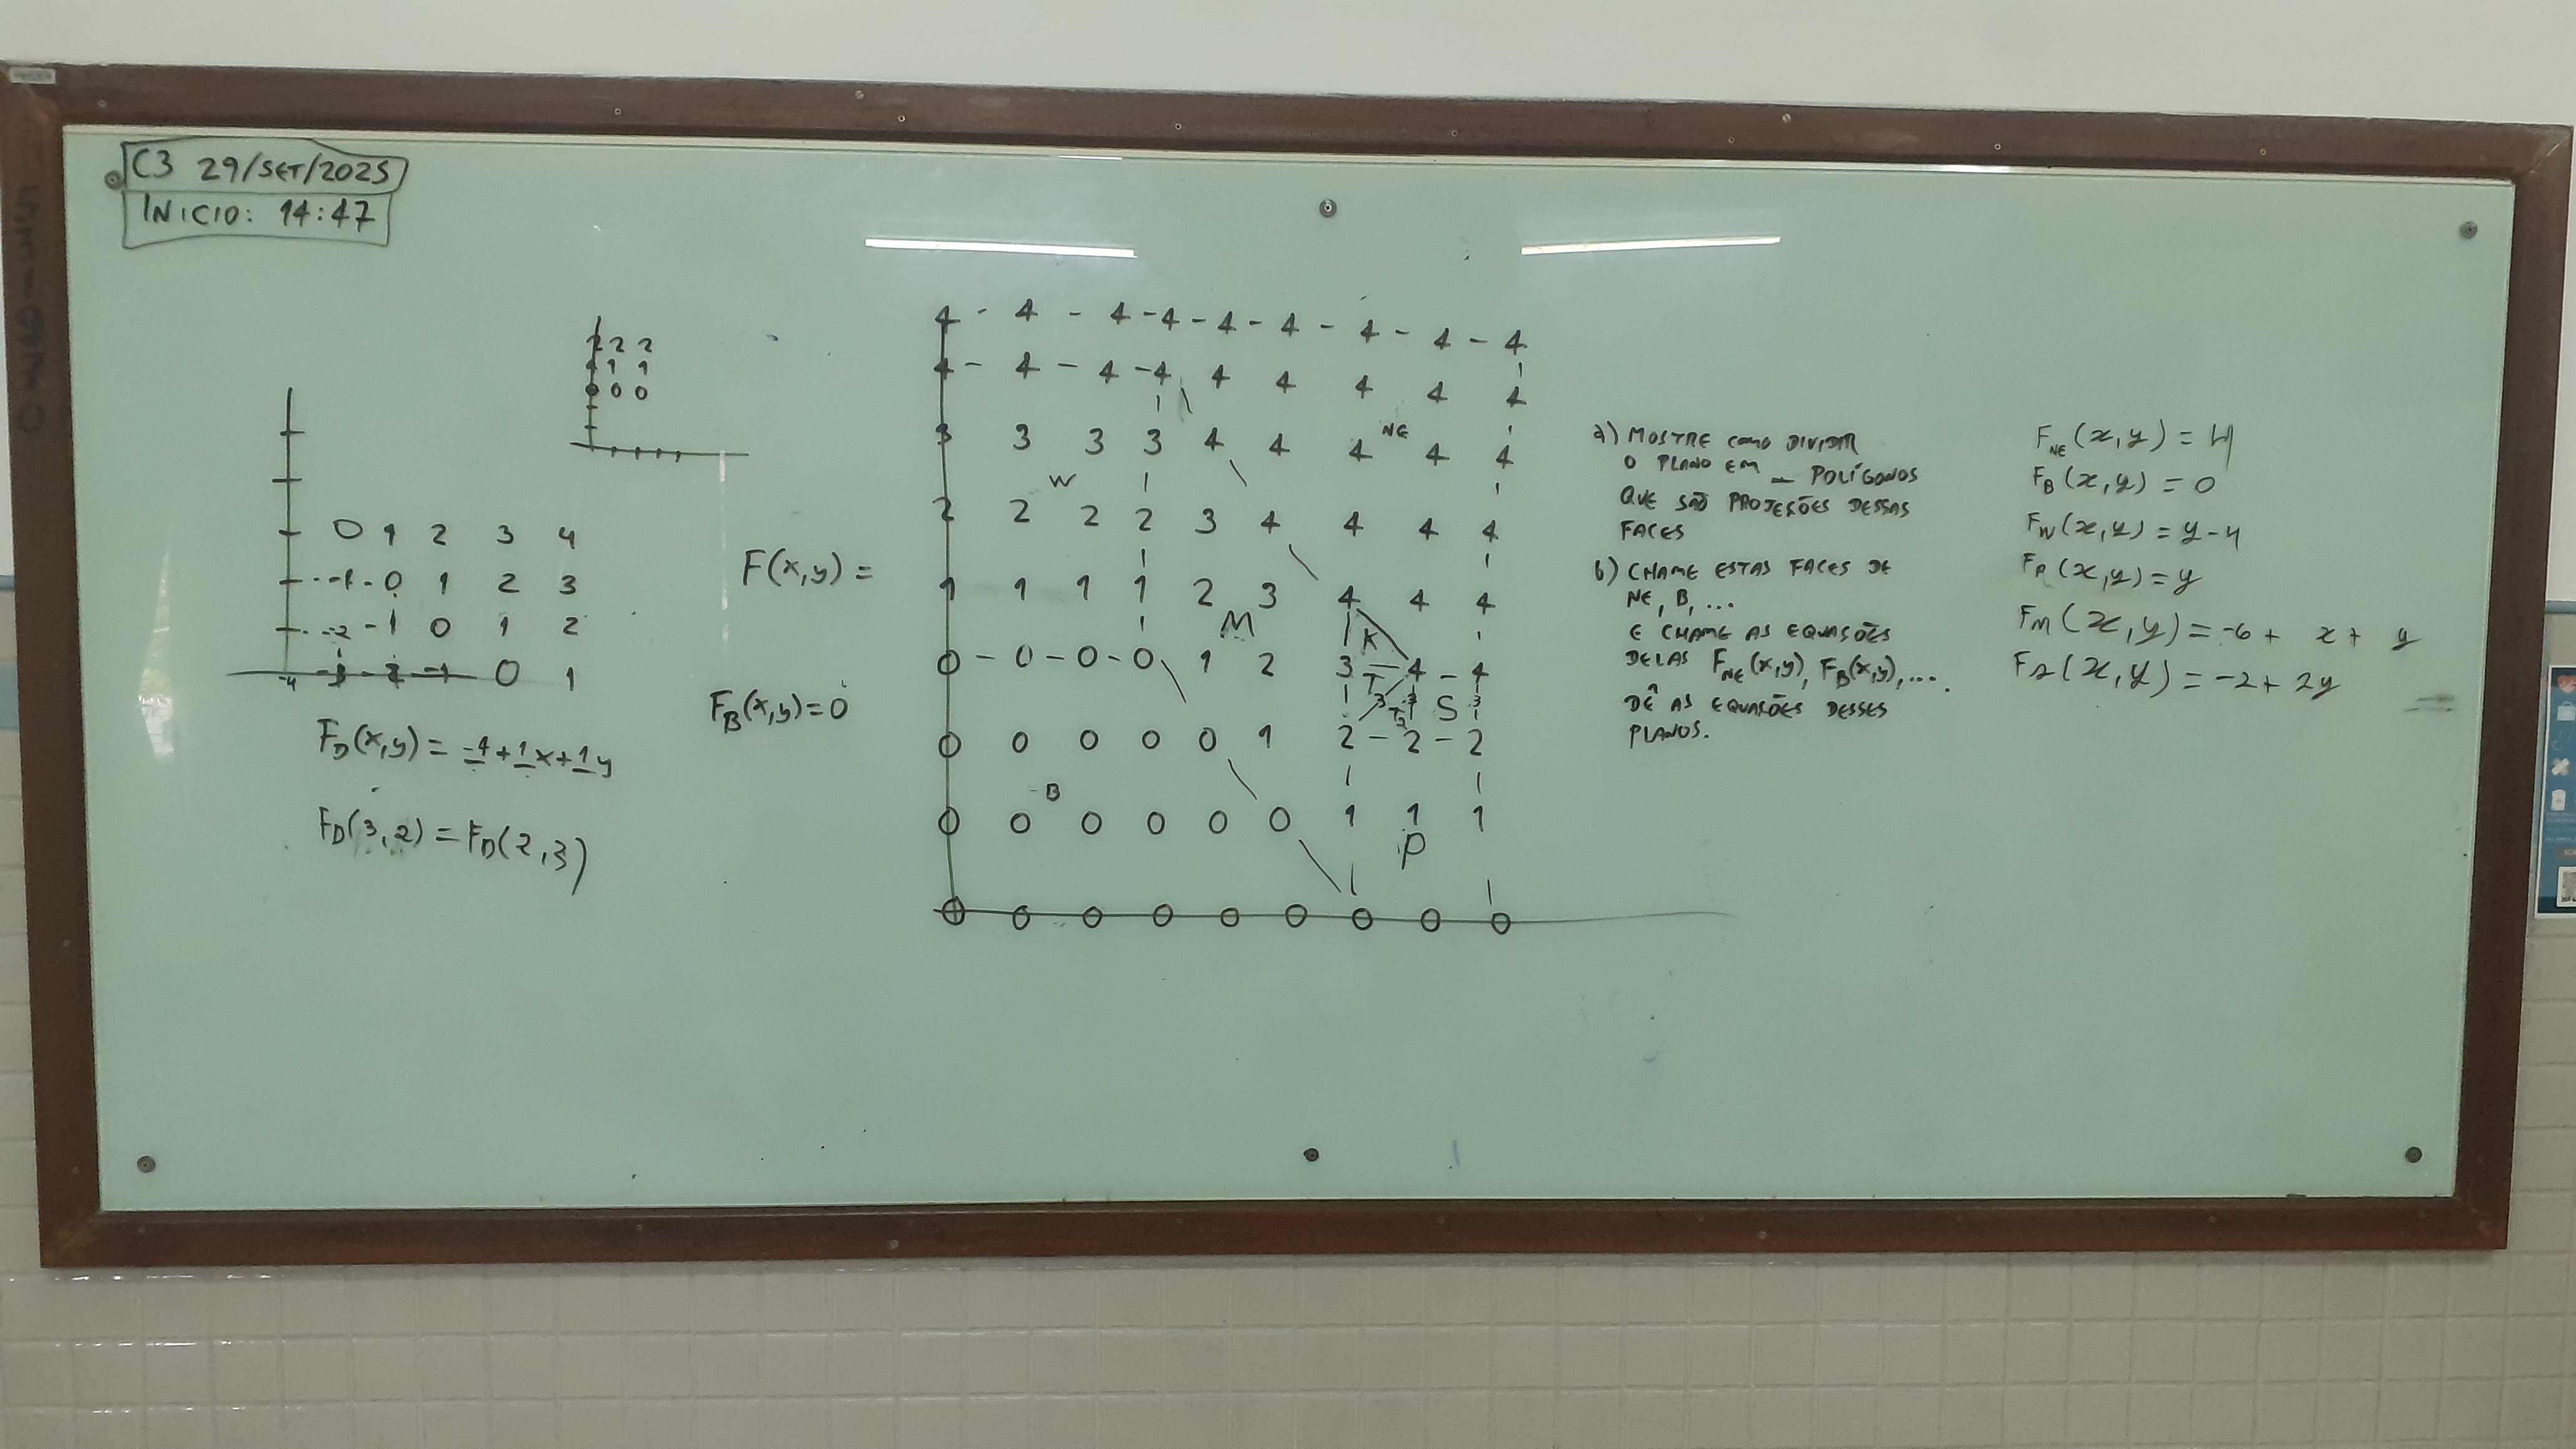 C3 29/SET/2025
INICIO: 14:47
2 2 2
1 1 1
0 0 0
0 1 2 3 4
-1 0 1 2 3
-2 -1 0 1 2
-4 -3 -2 -1 0 1
F_D(x,y) = -4+1x+1y
F_D(3,2) = F_D(2,3)
F(x,y) =
F_B(x,y)=0
4 - 4 - 4 - 4 - 4 - 4 - 4 - 4 - 4
4 - 4 - 4 - 4 4 4 4 4 4
3 3 3 3 4 4 4 NE 4 4
W
2 2 2 2 3 4 4 4 4
1 1 1 1 2 3 4 4 4
M K
0 - 0 - 0 - 0 1 2 3 - 4 - 4
T
3 3 S 3
0 0 0 0 0 1 2 - 2 - 2
B
0 0 0 0 0 0 1 1 1
P
0 0 0 0 0 0 0 0 0
a) MOSTRE COMO DIVIDIR
O PLANO EM _ POLÍGONOS
QUE SÃO PROJEÇÕES DESSAS
FACES
b) CHAME ESTAS FACES DE
NE, B, ...
E CHAME AS EQUAÇÕES
DELAS F_NE(x,y), F_B(x,y), ....
DÊ AS EQUAÇÕES DESSES
PLANOS.
F_NE(x,y) = 4
F_B(x,y) = 0
F_W(x,y) = y-4
F_P(x,y) = y
F_M(x,y) = -6 + x + y
F_S(x,y) = -2 + 2y